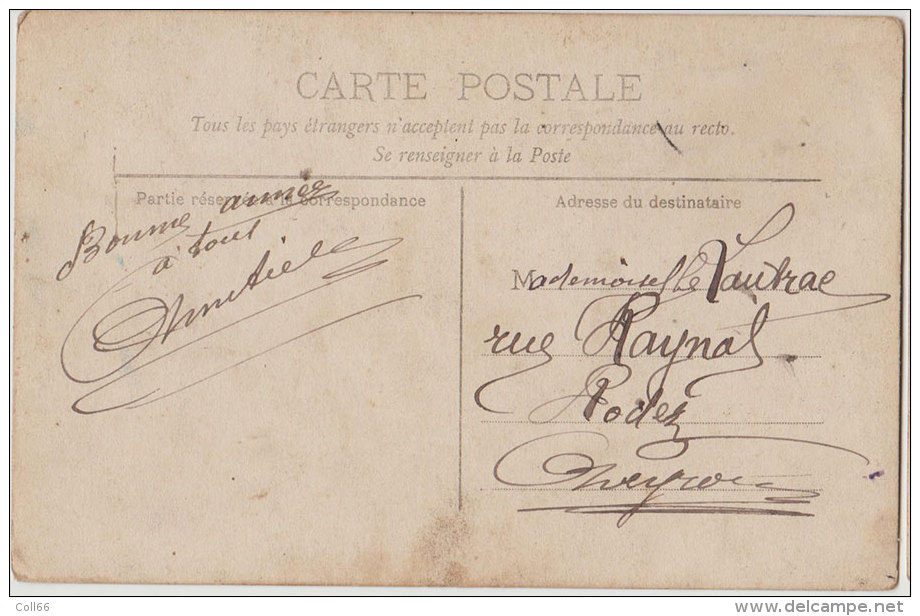 CARTE POSTALE
Tous les pays étrangers n'acceptent pas la correspondance au recto.
Se renseigner à la Poste
Partie réservée à la correspondance
Bonne année
à tous
Adresse du destinataire
Mademoiselle Vautrac
rue Raynal
Rodez
Aveyron
Coll66
delcampe.net